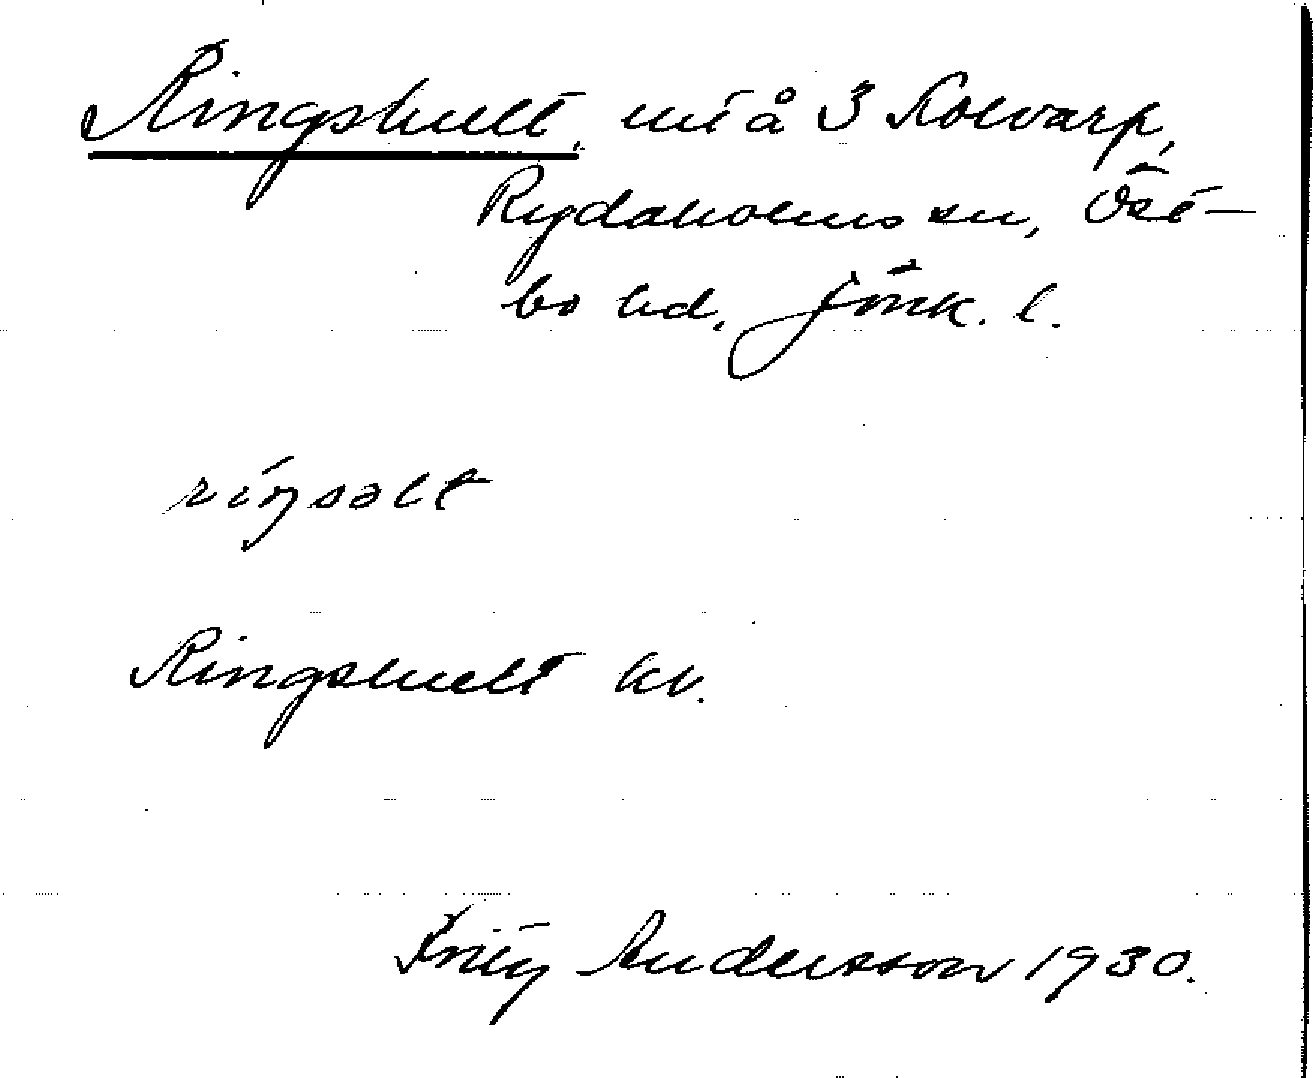 Ringshult, utå 3 Kolvarp,
Rydaholms sn, Öst-
bo hd, Jönk. l.
riŋsølt
Ringshult hv.
Andersson 1930.